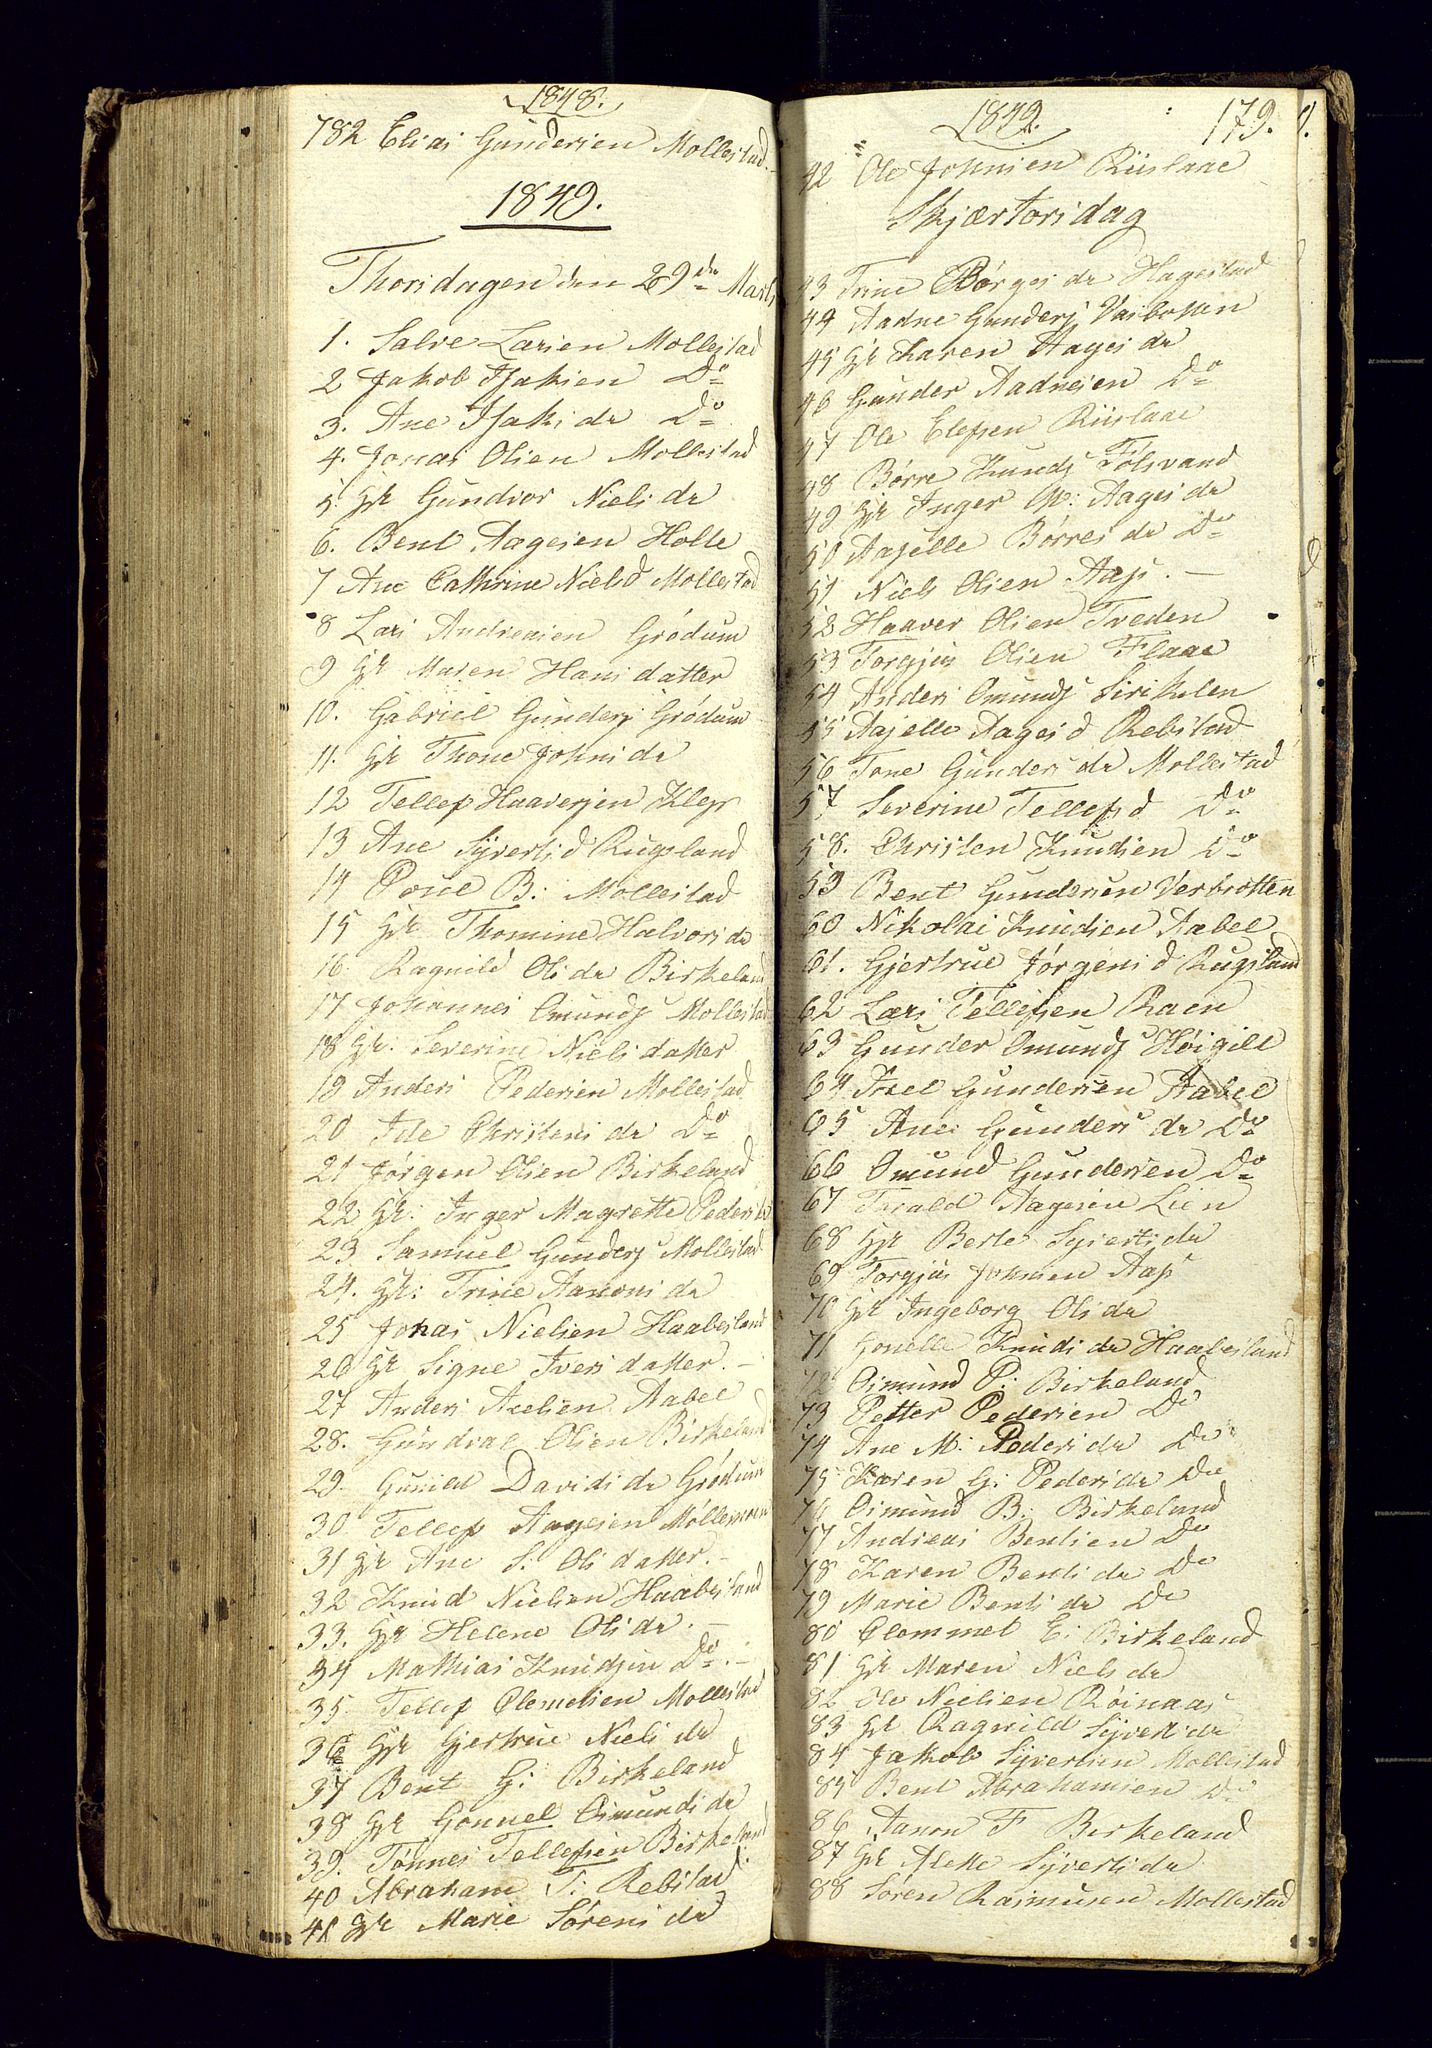 1848.
782 Elias Gundersen Mollestad
1849.
Thorsdagen den 29de Marts
1. Salve Larsen Mollestad
2 Jakob Isaksen Do
3. Ane Isaks dr Do
4. Jonas Olsen Mollestad
5. Gk Gundvor Niels dr
6. Bent Aagesen Holte
7 Ane Cathrine Nielsd Mollestad
8 Lars Andreasen Grödum
9 Gk Maren Hans datter
10. Gabriel Gunders Grödum
11. Gk Thone Johns dr
12 Tellef Haaversen Klep
13 Ane Syverts d Rugsland
14 Poul B: Mollestad
15 Gk Thomine Halvors dr
16. Ragnild Ols dr Birkeland
17 Johannes Omunds Mollestad
18 Gk: Severine Niels datter
19 Anders Pedersen Mollestad
20 Ide Christens dr Do
21 Jørgen Olsen Birkeland
22 Gk: Inger Magrette Peders dr
23 Samuel Gunders Mollestad
24. Gk: Trine Aanons dr
25 Jonas Nielsen Haabesland
26 Gk Signe Ivers datter. -
27 Anders Axelsen Aabel
28. Gundval Olsen Birkeland
29. Gunild Davids dr Grødum
30 Tellef Aagesen Møllemoen
31 Gk Ane S: Ols datter. -
32 Knud Nielsen Haabesland
33. Gk Helene Ols dr. -
34 Mathias Knudsen Do. -
35. Tellef Clemetsen Mollestad
36 Gk Gjertrue Niels dr
37 Bent G: Birkeland
38 Gk Gonnel Osmunds dr
39. Tønnes Tellefsen Birkeland
40 Abraham T: Rebstad
41 Gk Marie Sørens dr
1849. 179.
42 Ole Johnsen Riislaae
Skjærtorsdag
43 Trine Børges dr Hagestad
44 Aadne Gunders
45 Gk Karen Aages dr
46 Gunder Aadnesen Do
47 Ole Elefsen Riislaae
48 Børre Knuds Fölsvand
49 Gk Inger M: Aages dr
50 Aasille Børres dr Do
51 Niels Olsen Aas. -
52 Haaver Olsen Tveden
53 Torgjus Olsen Flaae
54 Anders Omunds Sirikelen
55 Aasille Aages d Rebstad
56 Tone Gunders dr Mollestad
57 Severine Tellefs d Do
58. Christen Knudsen Do
59 Bent Gundersen Verbrotten
60 Nikolai Knudsen Aabel
61. Gjertrue Jørgens d Rugsland
62 Lars Tellefsen Raen
63 Gunder Omunds Høigilt
64 Axel Gundersen Aabel
65 Ane Gunders dr Do
66 Omund Gundersen Do
67 Aagesen Lien
68 Gk Berte Syverts dr
69 Torgjus Johnsen Aas
70 Gk Ingeborg Ols dr
71 Gonelle Knuds dr Haabesland
72 Osmund P: Birkeland
73 Petter Pedersen Do
74 Ane M: Peders dr Do
75 Karen G: Peders dr Do
76 Osmund B: Birkeland
77 Andreas Bentsen Do
78 Karen Bents dr Do
79 Marie Bents dr Do
80 Clemmet E: Birkeland
81 Gk Maren Niels dr
82 Ole Nielsen Röinaas
83 Gk Ragnild Syverts dr
84 Jakob Syvertsen Mollestad
85 Bent Abrahamsen Do
86 Aanon F Birkeland
87 Gk Alette Syverts dr
88 Søren Rasmusen Mollestad